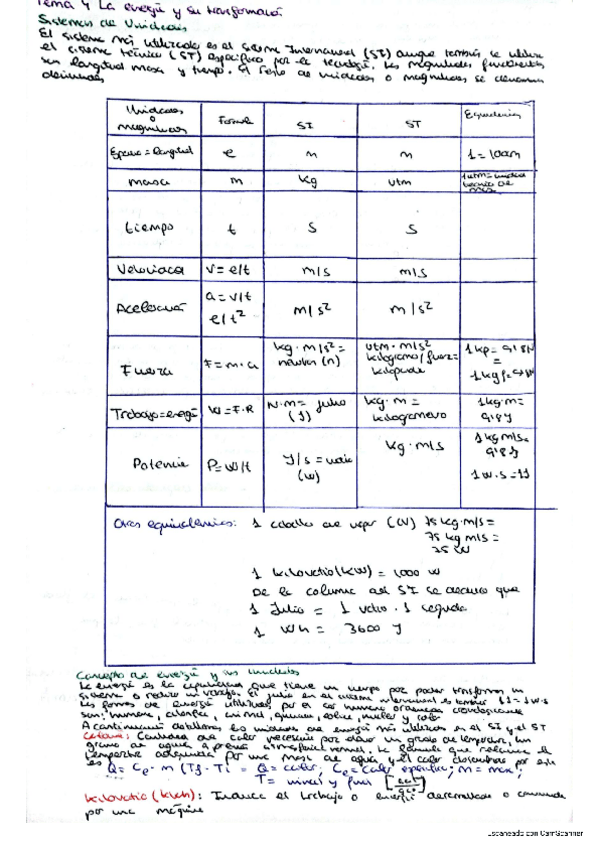 Tema 4 La energía y su transformación
Sistemas de Unidades
El sistema más utilizado es el Sistema Internacional (SI) aunque también se utiliza
el sistema técnico (ST) específico por la tecnología. Las magnitudes fundamentales
son longitud masa y tiempo. El resto de unidades o magnitudes se denominan
derivadas
Unidades o magnitudes Formula SI ST Equivalencias
Espacio = longitud e m m 1 = 100cm
masa m kg utm 1utm = unidad tecnica De masa
tiempo t s s
Velocidad v = e/t m/s m/s
Aceleración a = v/t e/t² m/s² m/s²
Fuerza F = m·a kg·m/s² = newton (n) utm·m/s² kilogramo/fuerza = kilopondio 1kp = 9'8N = 1kgf = 9'8N
Trabajo = energía W = F·R N·m = Julio (J) kg·m = kilogramo 1kg·m = 9'8J
Potencia P = W/t J/s = vatio (w) kg·m/s 1kgm/s = 9'8J 1W·s = 1J
Otras equivalencias: 1 caballo de vapor (CV) 75 kg·m/s =
75 kgm/s =
1 kilovatio (kw) = 1000 w
De la columna del SI se deduce que
1 Julio = 1 vatio · 1 segundo
1 Wh = 3600 J
Concepto de energía y sus unidades
La energía es la capacidad que tiene un cuerpo para poder transformar un
sistema o realizar un trabajo. El julio en el sistema internacional es también 1J = 1W·s
Las formas de energía utilizadas por el ser humano ordenadas cronológicamente
son: humana, calorífica, animal, química, eólica, nuclear y solar
A continuación detallamos las unidades de energía más utilizadas en el SI y el ST
Caloría: Cantidad de calor necesaria para elevar un grado de temperatura, un
gramo de agua a presión atmosférica normal. La fórmula que relaciona el
temperatura adquirida por una masa de agua y el calor absorbido por esta
es Q = Ce · m (Tf - Ti) = Q = calor; Ce = Calor específico; m = masa;
T = inicial y final
Kilovatio (kwh): Indica el trabajo o energía desarrollada o consumida
por una máquina
Escaneado con CamScanner